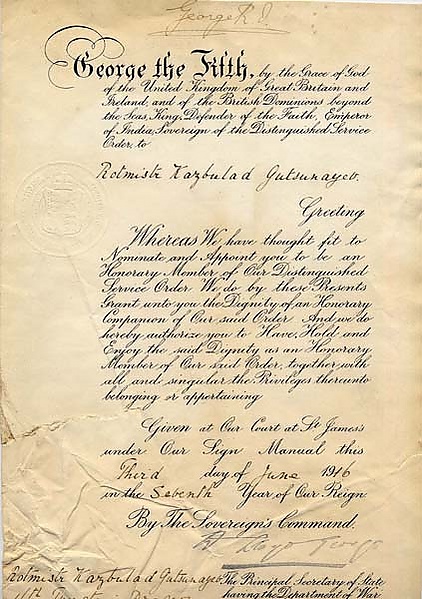 George R.I.
George the Fifth, by the Grace of God
of the United Kingdom of Great Britain and
Ireland, and of the British Dominions beyond
the Seas, King, Defender of the Faith, Emperor
of India, Sovereign of the Distinguished Service
Order, to
Rotmistr Kazbulad Gutsunayev.
Greeting
Whereas We have thought fit to
Nominate and Appoint you to be an
Honorary Member of Our Distinguished
Service Order We do by these Presents
Grant unto you the Dignity of an Honorary
Companion of Our said Order And we do
hereby authorize you to Have, Hold and
Enjoy the said Dignity as an Honorary
Member of Our said Order, together with
all and singular the Privileges thereunto
belonging or appertaining
Given at Our Court at St James's
under Our Sign Manual this
Third day of June 1916
in the Seventh Year of Our Reign.
By The Sovereign's Command.
Lloyd George
Rotmistr Kazbulad Gutsunayev
The Principal Secretary of State
having the Department of War